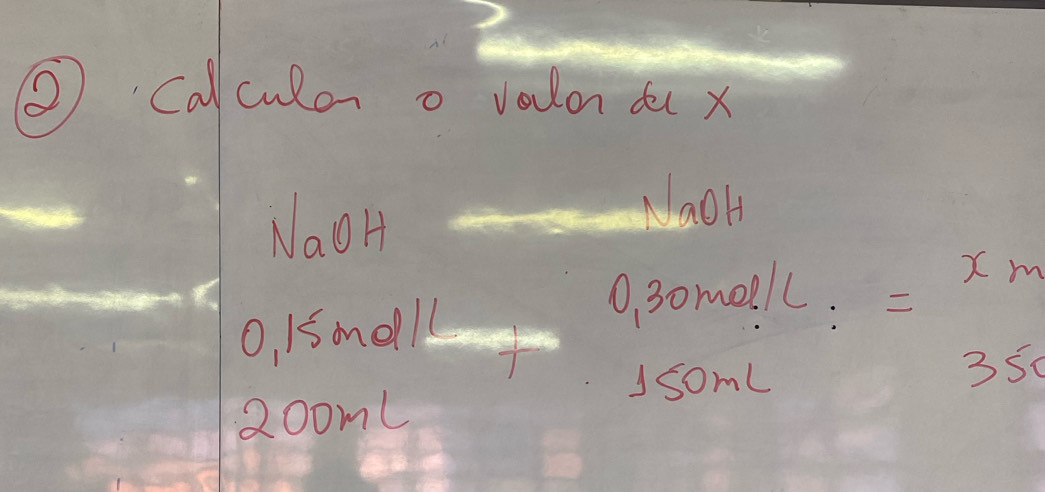 ② Calcular o valor de x
NaOH NaOH
0,15mol/L + 0,30mol/L = x m
200mL 150mL 350